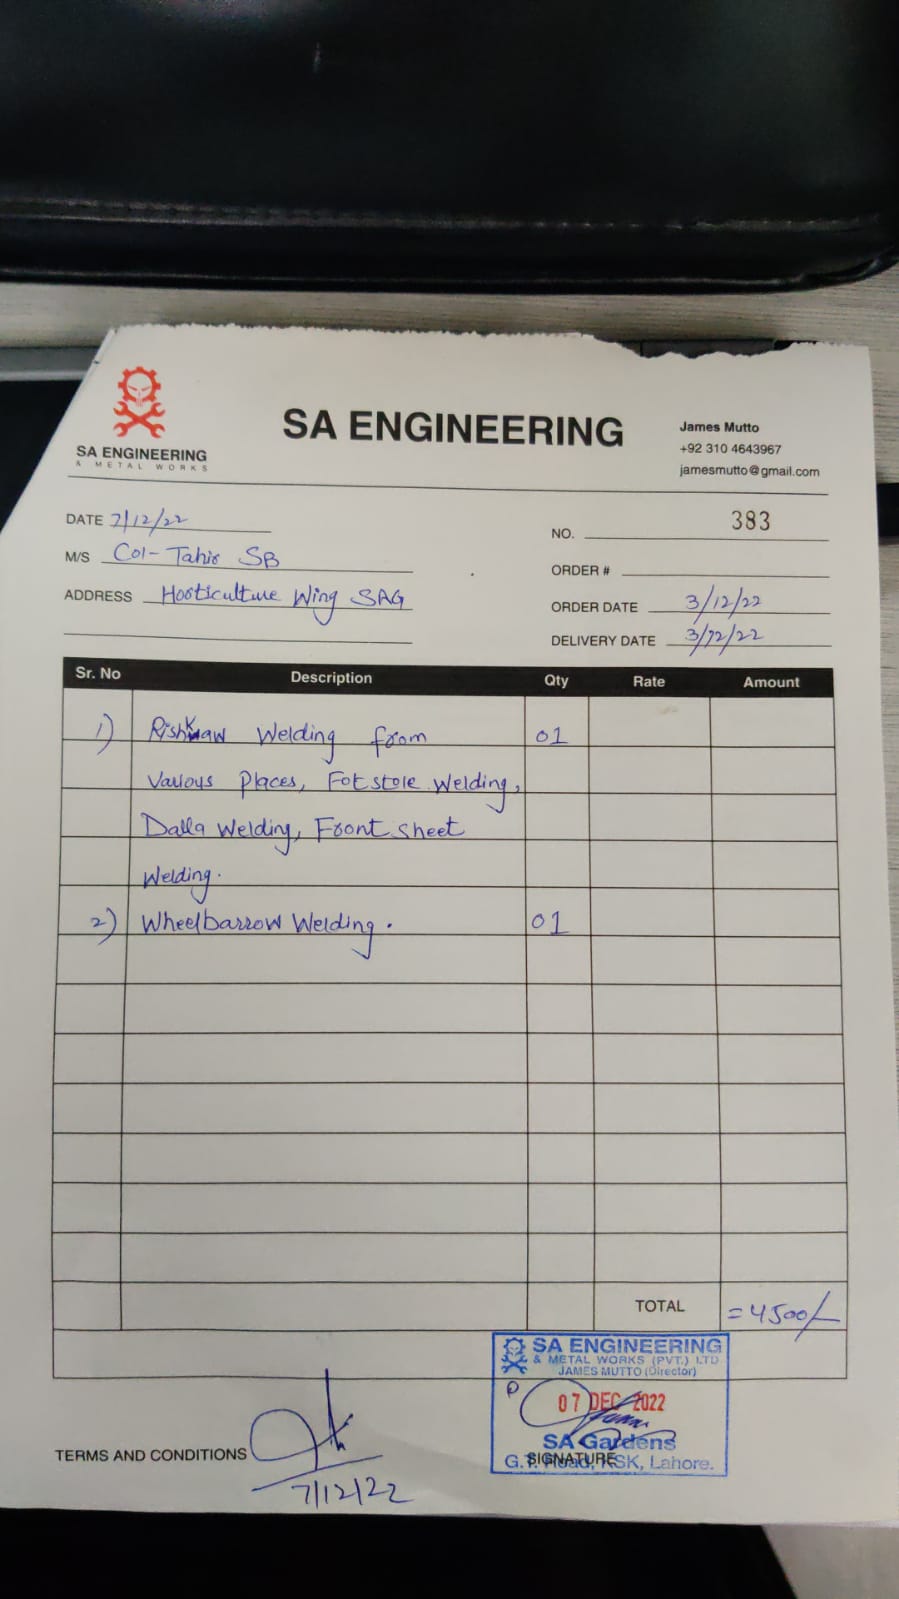 SA ENGINEERING
& METAL WORKS
SA ENGINEERING
James Mutto
+92 310 4643967
jamesmutto@gmail.com
DATE 7/12/22
NO. 383
M/S Col- Tahir SB
ORDER #
ADDRESS Horticulture Wing SAG
ORDER DATE 3/12/22
DELIVERY DATE 3/12/22
Sr. No Description Qty Rate Amount
1) Rishkaw Welding from 01
Various Places, Fotstole Welding,
Dalla Welding, Front sheet
Welding.
2) Wheelbarrow Welding. 01
TOTAL =4500/-
SA ENGINEERING
& METAL WORKS (PVT.) LTD
JAMES MUTTO (Director)
07 DEC 2022
SA Gardens
G.T. Road, KSK, Lahore.
TERMS AND CONDITIONS
SIGNATURE
7/12/22